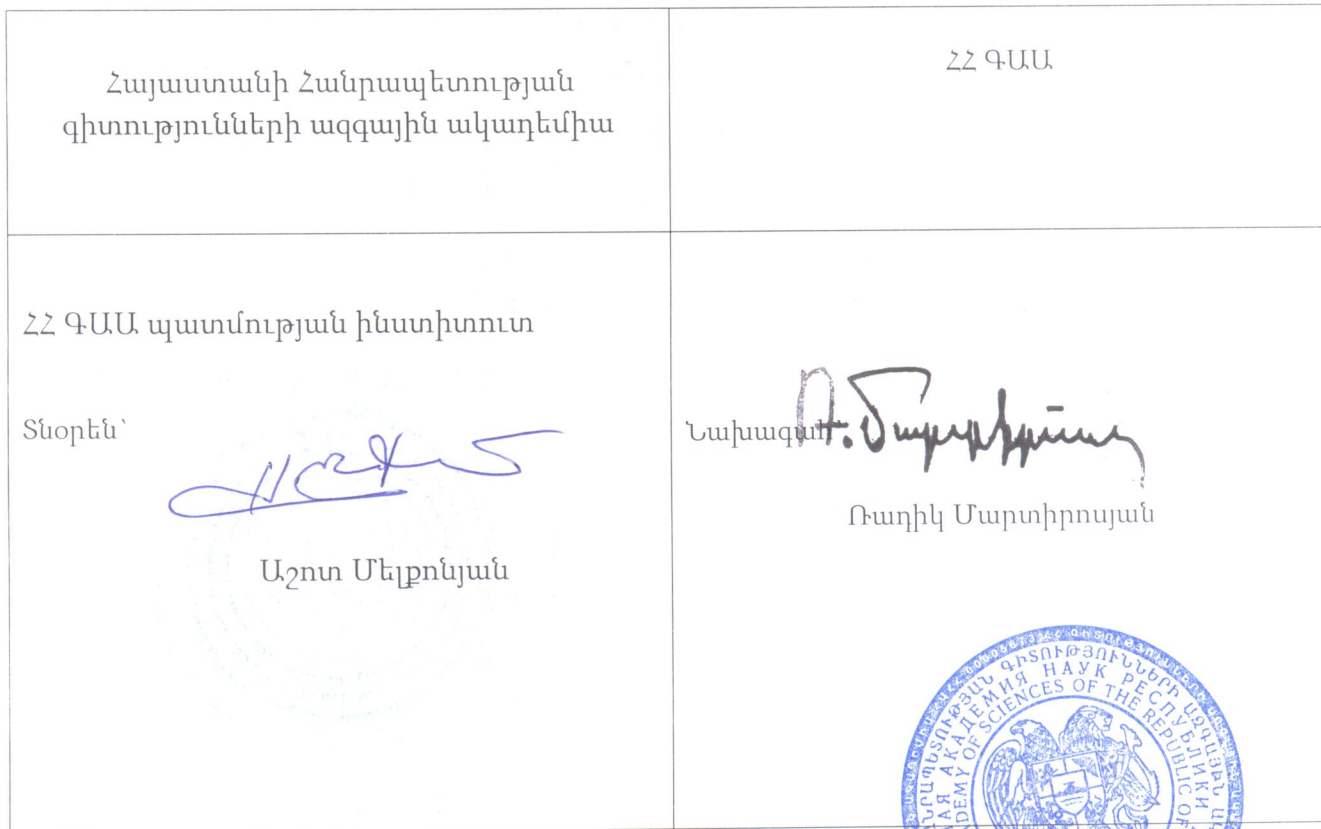 Հայաստանի Հանրապետության
գիտությունների ազգային ակադեմիա
ՀՀ ԳԱԱ
ՀՀ ԳԱԱ պատմության ինստիտուտ
Տնօրեն՝
Աշոտ Մելքոնյան
Նախագահ՝
Ռ. Մարտիրոսյան
Ռադիկ Մարտիրոսյան
ԳԻՏՈՒԹՅՈՒՆՆԵՐԻ ԱԶԳԱՅԻՆ
АКАДЕМИЯ НАУК РЕСПУБЛИКИ
SCIENCES OF THE REPUBLIC OF